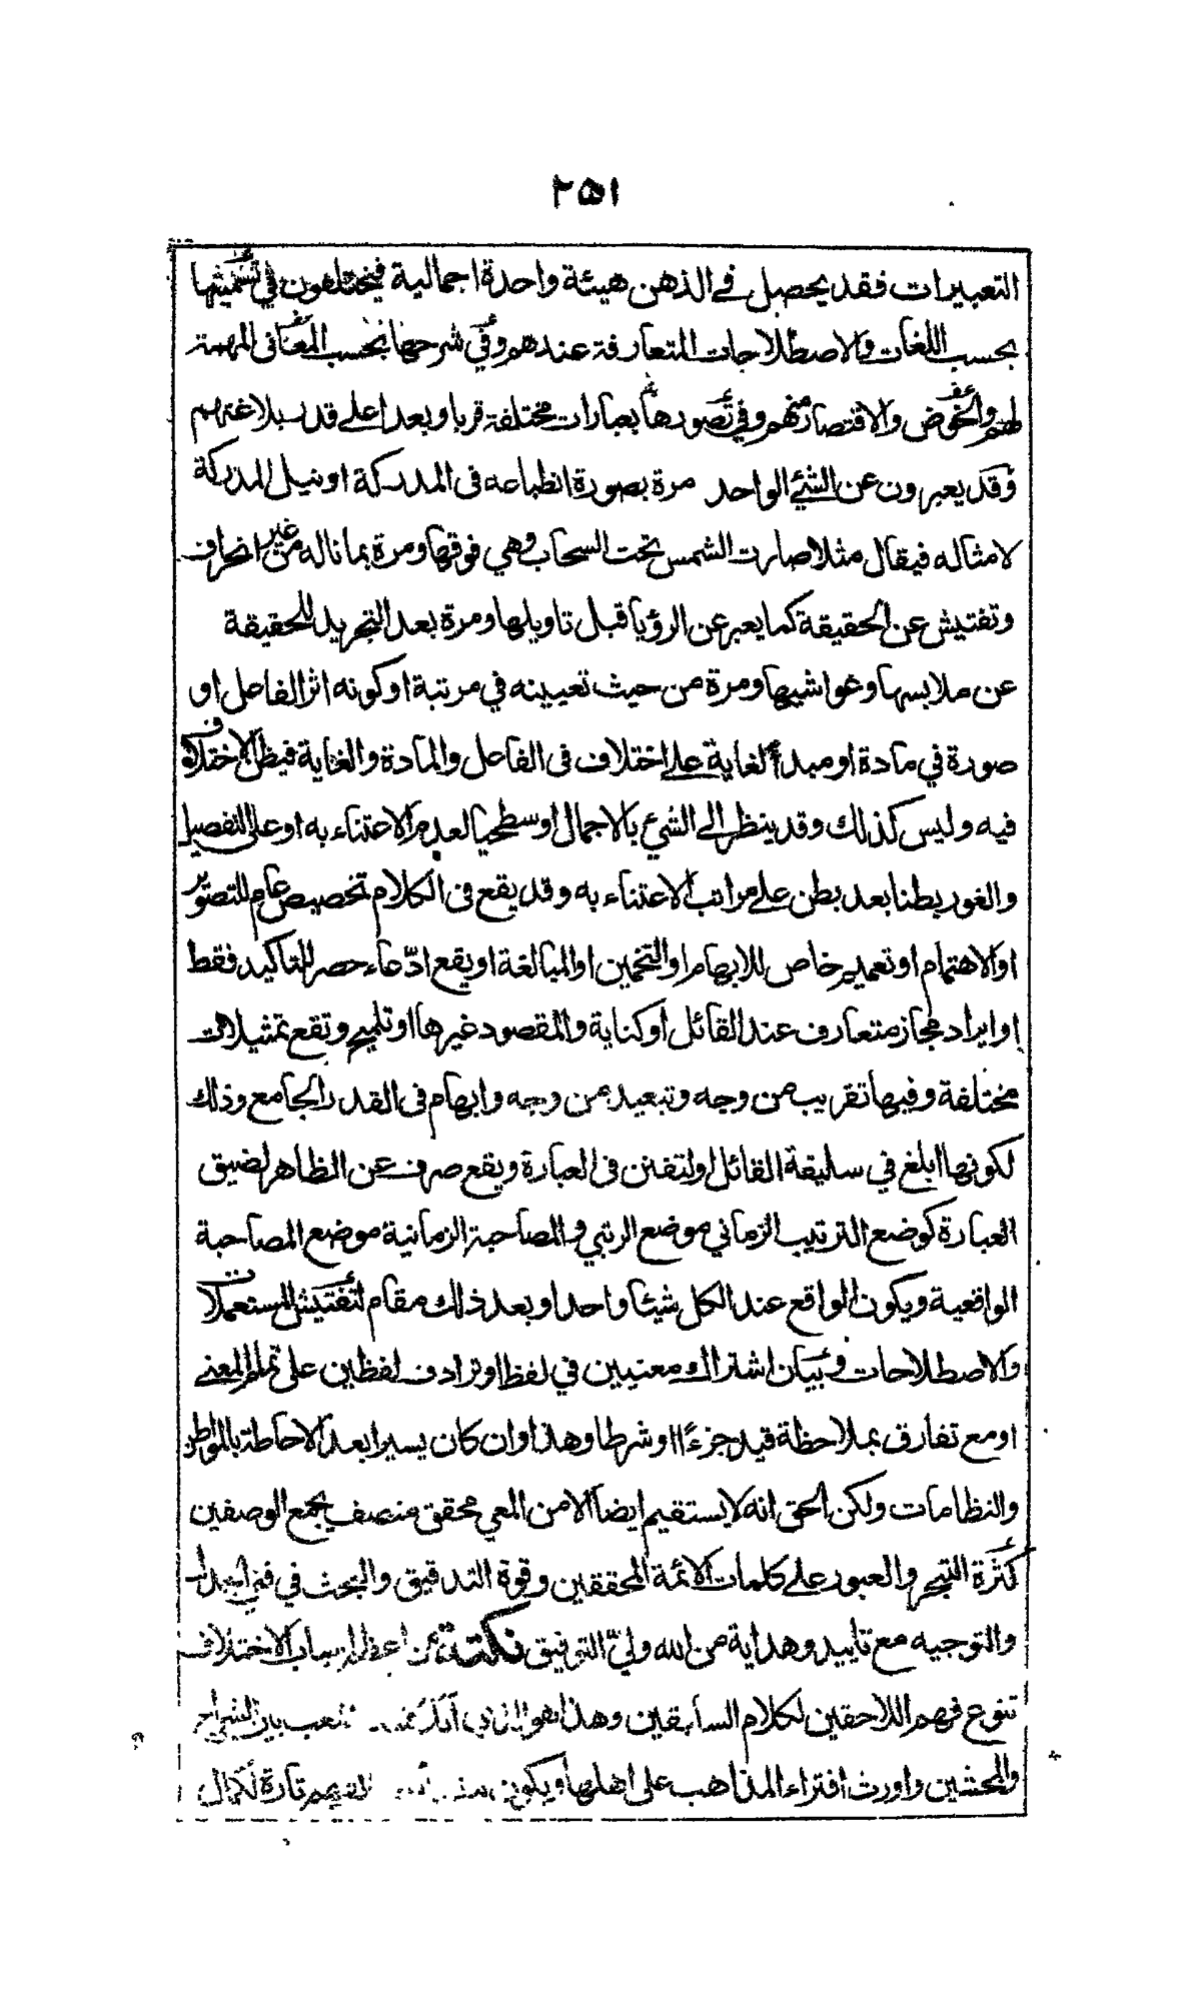 ٢٥١
التعبيرات فقد يحصل في الذهن هيئة واحدة اجمالية فيختلفون في تسميتها
بحسب اللغات والاصطلاحات المتعارفة عندهم وفي شرحها بحسب المعاني المهمة
لهم والخوض والاقتصار منهم وفي تصورها بعبارات مختلفة قربا وبعدا على قدر بلاغتهم
وقد يعبرون عن الشئ الواحد مرة بصورة انطباعه فى المدركة او نيل المدركة
لامثاله فيقال مثلا صارت الشمس تحت السحاب وهي فوقها ومرة بما ناله من غير انحراف
وتفتيش عن الحقيقة كما يعبر عن الرؤيا قبل تاويلها ومرة بعد التجريد للحقيقة
عن ملابسها وغواشيها ومرة من حيث تعيينه في مرتبة او كونه اثر الفاعل او
صورة في مادة او مبدأ لغاية على اختلاف فى الفاعل والمادة والغاية فيظن الاختلاف
فيه وليس كذلك وقد ينظر الى الشئ بالاجمال او سطحيا لعدم الاعتناء به او على التفصيل
والغور بطنا بعد بطن على مراتب الاعتناء به وقد يقع فى الكلام تخصيص عام للتصوير
او الاهتمام او تعميم خاص للابهام او التخمين او المبالغة او يقع ادّعاء حصر للتاكيد فقط
او ايراد مجاز متعارف عند القائل او كناية والمقصود غيرها او تلميح وتقع تمثيلات
مختلفة وفيها تقريب من وجه وتبعيد من وجه وابهام فى القدر الجامع وذلك
لكونها ابلغ في سليقة القائل او لتفنن فى العبارة ويقع صرف عن الظاهر لضيق
العبارة كوضع الترتيب الزماني موضع الرتبي والمصاحبة الزمانية موضع المصاحبة
الواقعية ويكون الواقع عند الكل شيئا واحدا وبعد ذلك مقام لتفتيش المستعملات
والاصطلاحات وبيان اشتراك معنيين في لفظ او ترادف لفظين على تمام المعنى
او مع تفارق بملاحظة قيد جزءًا او شرطا وهذا وان كان يسيرا بعد الاحاطة بالمواطن
والنظامات ولكن الحق انه لا يستقيم ايضا الا من المعي محقق منصف يجمع الوصفين
كثرة التبحر والعبور على كلمات الائمة المحققين وقوة التدقيق والبحث في فن
والتوجيه مع تاييد وهداية من الله وليّ التوفيق نكتة من اعظم اسباب الاختلاف
تنوع فهم اللاحقين لكلام السابقين وهذا هو الذي بين الشراح
والمحشين واورث افتراء المذاهب على اهلها ويكون تارة لكمال